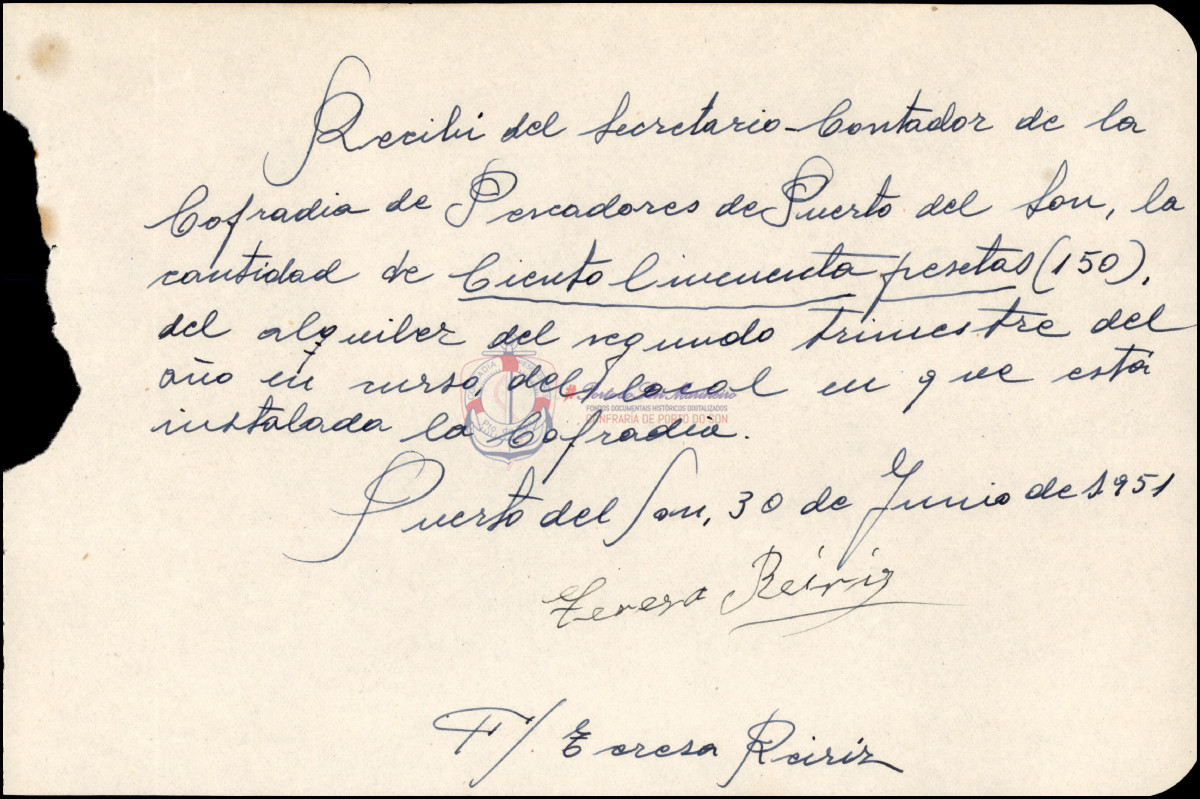 Recibí del Secretario-Contador de la
Cofradia de Pescadores de Puerto del Son, la
cantidad de Ciento Cincuenta pesetas (150),
del alquiler del segundo trimestre del
año en curso, del local en que está
instalada la Cofradia.
#Porto do Son Mariñeiro
FONDOS DOCUMENTAIS HISTÓRICOS DIXITALIZADOS
CONFRARIA DE PORTO DO SON
Puerto del Son, 30 de Junio de 1951
Teresa Reiriz
F/. Teresa Reiriz